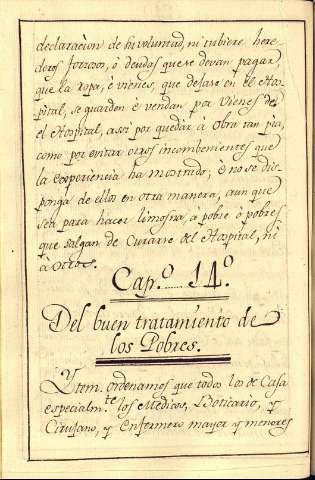 declaraciòn de su voluntad, ni tubiere here-
deros forzosos, ò deudas que se devan pagar,
que la ropa, è vienes, que dejare en el Hos-
pital, se guarden è vendan por Vienes del
el Hospital, assi por quedar à Obra tan pia,
como por evitar otros incombenientes que
la experiencia ha mostrado; è no se dis-
ponga de ellos en otra manera, aun que
sea para hacer limosna, a pobre ò pobres
que salgan de Curarse del Hospital, ni
à otros.
Cap.º 14.º
Del buen tratamiento de
los Pobres.
Ytom. ordenamos que todos los de Casa
especialm.te los Medicos, Boticario, y
Cirujano, y Enfermero mayor y menores